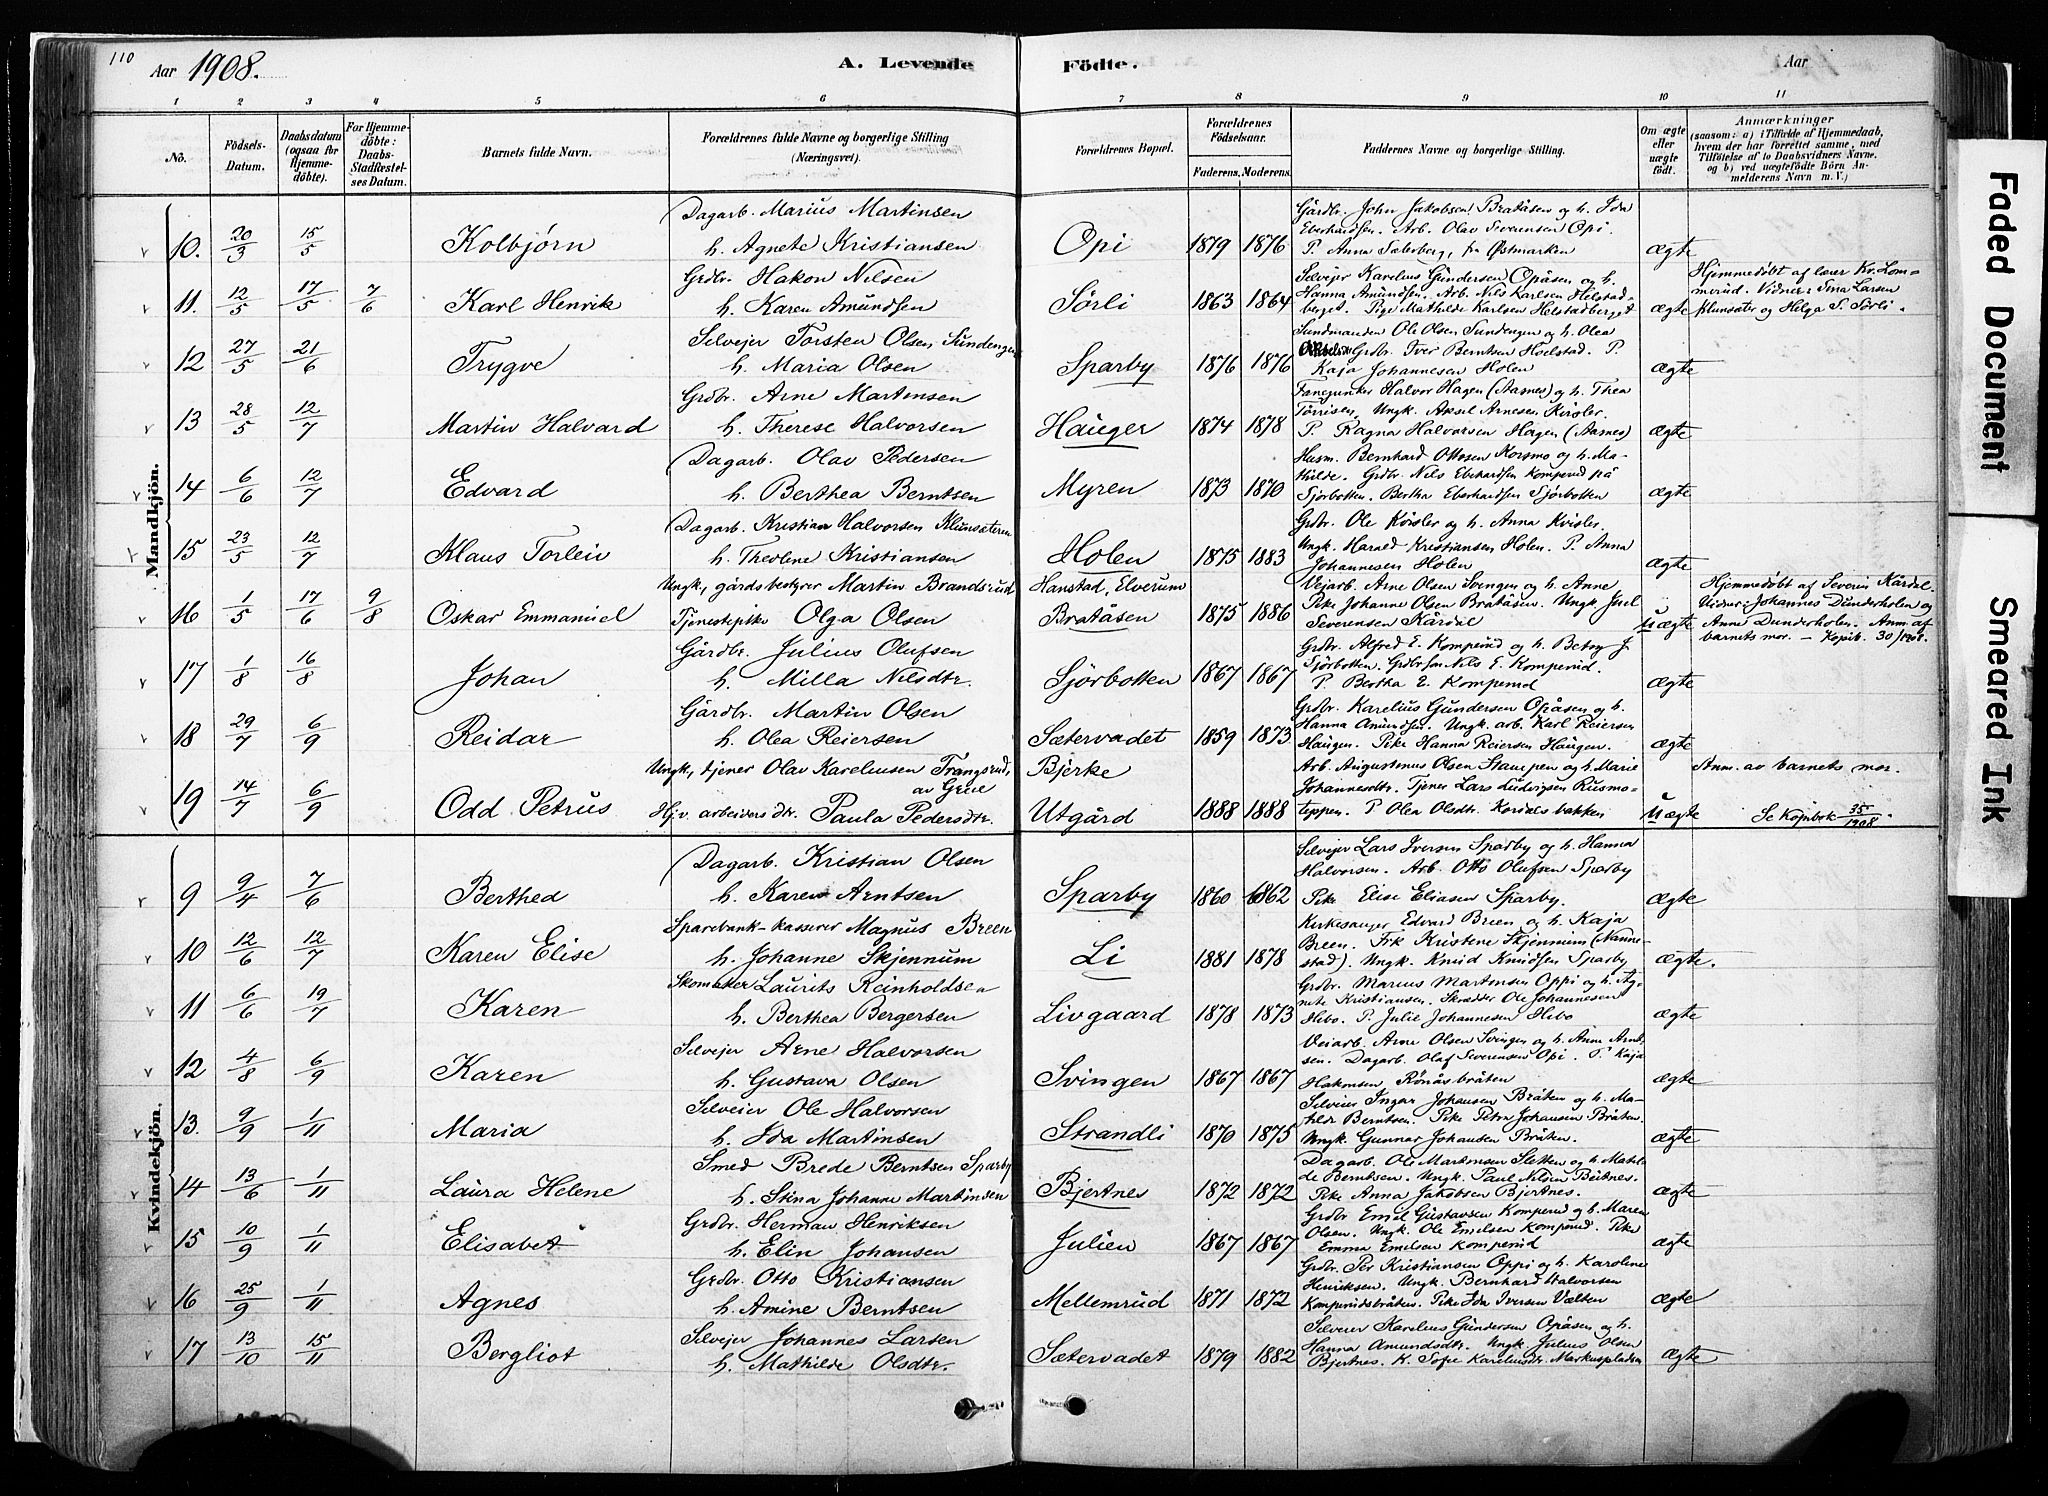 110
Aar 1908.
A. Levende
Födte.
Aar
1 2 3 4 5 6 7 8 9 10 11
No.
Födsels-
Datum.
Daabsdatum
(ogsaa for
Hjemme-
döbte).
For Hjemme-
döbte:
Daabs-
Stadfæstel-
ses Datum.
Barnets fulde Navn.
Forældrenes fulde Navne og borgerlige Stilling
(Næringsvei).
Forældrenes Bopæl.
Forældrenes
Födselsaar.
Faderens. Moderens.
Faddernes Navne og borgerlige Stilling.
Om ægte
eller
uægte
födt.
Anmærkninger
(saasom: a) i Tilfælde af Hjemmedaab,
hvem der har forrettet samme, med
Tilföielse af to Daabsvidners Navne,
og b) ved uægtefödte Börn An-
melderens Navn m. V.)
Mandkjön.
10. 20/3 15/5 Kolbjørn
Dagarb. Marius Martinsen
h. Agnete Kristiansen
Opi 1879 1876
Gårdbr. John Jakobsen Bratåsen og h. Ida
Eberhardsen. Arb. Olav Seversen Opi.
P. Anna Sæterberg, fra Østmarken
ægte
11. 12/5 17/5 7/6 Karl Henrik
Grdbr. Hakon Nilsen
h. Karen Amundsen
Sørli 1863 1864
Selvejer Karelius Gundersen Opåsen og h.
Hanna Amundsen. Arb. Nils Karlsen Helstad-
berget. Pige Mathilde Karlsen Helstadberget
ægte
Hjemmedøbt af lærer Kr. Lom-
merud. Vidner: Tina Larsen
Klunsæter og Helga S. Sørli.
12 27/5 21/6 Trygve
Selvejer Torsten Olsen Sundengen
h. Maria Olsen
Sparby 1876 1876
Sundmanden Ole Olsen Sundengen og h. Olea
Grdbr. Iver Berntsen Hoelstad. P.
Kaja Johannesen Holen
ægte
13 28/5 12/7 Martin Halvard
Grdbr. Arne Martinsen
h. Therese Halvorsen
Hauger 1874 1878
Fanejunker Halvor Hagen (Aasnes) og h. Thea
Torrisen, Ungk. Aksel Arnesen Kvisler.
P. Ragna Halvorsen Hagen (Aasnes)
ægte
14 6/6 12/7 Edvard
Dagarb. Olav Pedersen
h. Berthea Berntsen
Myren 1873 1870
Husm. Bernhard Ottosen Korsmo og h. Ma-
thilde. Grdbr. Nils Eberhardsen Komperud på
Sjørbotten. Bertha Eberhardsen Sjørbotten
ægte
15 23/5 12/7 Klaus Torleiv
Dagarb. Kristian Halvorsen Klunsæteren
h. Theoline Kristiansen
Holen 1875 1883
Grdbr. Ole Kvisler og h. Anna Kvisler.
Ungk. Harald Kristiansen Holen. P. Anna
Johannesen Holen
ægte
16 1/5 17/6 9/8 Oskar Emmanuel
Ungk, gårdsbestyrer Martin Brandsrud
Tjenestepike Olga Olsen
Hanstad, Elverum
Bratåsen 1875 1886
Veiarb. Arne Olsen Svingen og h. Anne
Pike Johanne Olsen Bratåsen. Ungk Juel
Severensen Kårdal
uægte
Hjemmedøbt af Severin Kårdal.
Vidner: Johannes Dunderholen og
Anne Dunderholen. Anm. af
barnets mor. – Kopib. 30/1908.
17 1/8 16/8 Johan
Gårdbr. Julius Olufsen
h. Milla Nilsdtr.
Sjörbotten 1867 1867
Grdbr. Alfred E. Komperud og h. Betsy J.
Sjörbotten. Grdbrsøn Nils E. Komperud.
P. Bertha E. Komperud
ægte
18 29/7 6/9 Reidar
Gårdbr. Martin Olsen
h. Olea Reiersen
Sætervadet 1859 1873
Grdbr. Karelius Gundersen Opåsen og h.
Hanna Amundsen. Ungk. arb. Karl Reiersen
Haugen. Pike Hanna Reiersen Haugen.
ægte
19 14/7 6/9 Odd Petrus
Ungk, tjener Olav Kareliusen Trangsrud,
av Grue
Hjv. arbeidersdtr. Paula Pedersdtr.
Bjerke
Utgård 1888 1888
Arb. Augustinus Olsen Stampen og h. Marie
Johannesdtr. Tjener Lars Ludvigsen Rusmo-
teppen. P. Olea Olsdtr. Kordalsbakken
uægte
Anm. av barnets mor.
Se Kopibok 35/1908.
Kvindekjön.
9 9/4 7/6 Berthea
Dagarb. Kristian Olsen
h. Karen Arntsen
Sparby 1860 1862
Selvejer Lars Iversen Sparby og h. Hanna
Halvorsen. Arb. Otto Olufsen Sparby
Pike Elise Eliasen Sparby.
ægte
10 12/6 12/7 Karen Elise
Sparebank-kasserer Magnus Breen
h. Johanne Skjennum
Li 1881 1878
Kirkesanger Edvard Breen og h. Kaja
Breen. Frk Kristene Skjennum (Nanne-
stad). Ungk. Knud Knudsen Sparby
ægte.
11 6/6 19/7 Karen
Skomaker Laurits Reinholdsen
h. Berthea Bergersen
Livgaard 1878 1873
Grdbr. Marius Martinsen Oppi og h. Ag-
nete Kristiansen. Skrædder Ole Johannesen
Hebo. P. Julie Johannesen Hebo
ægte
12 4/8 6/9 Karen
Selvejer Arne Halvorsen
h. Gustava Olsen
Svingen 1867 1867
Veiarb. Arne Olsen Svingen og h. Anne Arnt-
sen. Dagarb. Olaf Severensen Opi. P. Kaja
Hakonsen Rönåsbråten
ægte
13. 9/9 1/11 Maria
Selveier Ole Halvorsen
h. Ida Martinsen
Strandli 1870 1875
Selveier Ingar Johansen Bråten og h. Ma-
tilde Berntsen. Pike Petra Johansen Bråten.
Ungk. Gunnar Johansen Bråten.
ægte
14 13/6 1/11 Laura Helene
Smed Brede Berntsen Sparby
h. Stina Johanne Martinsen
Bjertnes 1872 1872
Dagarb. Ole Martinsen Sletten og h. Matil-
de Berntsen. Ungk. Paul Nilsen Beitnes.
Pike Anna Jakobsen Bjertnes.
ægte
15 10/9 1/11 Elisabet
Grdbr. Herman Henriksen
h. Elin Johansen
Julien 1867 1867
Grdbr Emil Gustavsen Komperud og h. Maren
Olsen. Ungk. Ole Emilsen Komperud. Pike
Emma Emilsen Komperud
ægte
16 25/9 1/11 Agnes
Grdbr. Otto Kristiansen
h. Amine Berntsen
Mellemrud 1871 1872
Grdbr. Per Kristiansen Oppi og h. Karoline
Henriksen. Ungk. Bernhard Halvorsen
Komperudsbråten. Pike Ida Iversen Vælten
ægte
17 13/10 15/11 Bergliot
Selvejer Johannes Larsen
h. Mathilde Olsdtr.
Sætervadet 1879 1882
Selveier Karelius Gundersen Opåsen og h.
Hanna Amundsdtr. Ungk Julius Olsen
Bjertnes. K. Sofie Kareliusdtr. Markusplassen
ægte
Faded Document
Smeared Ink